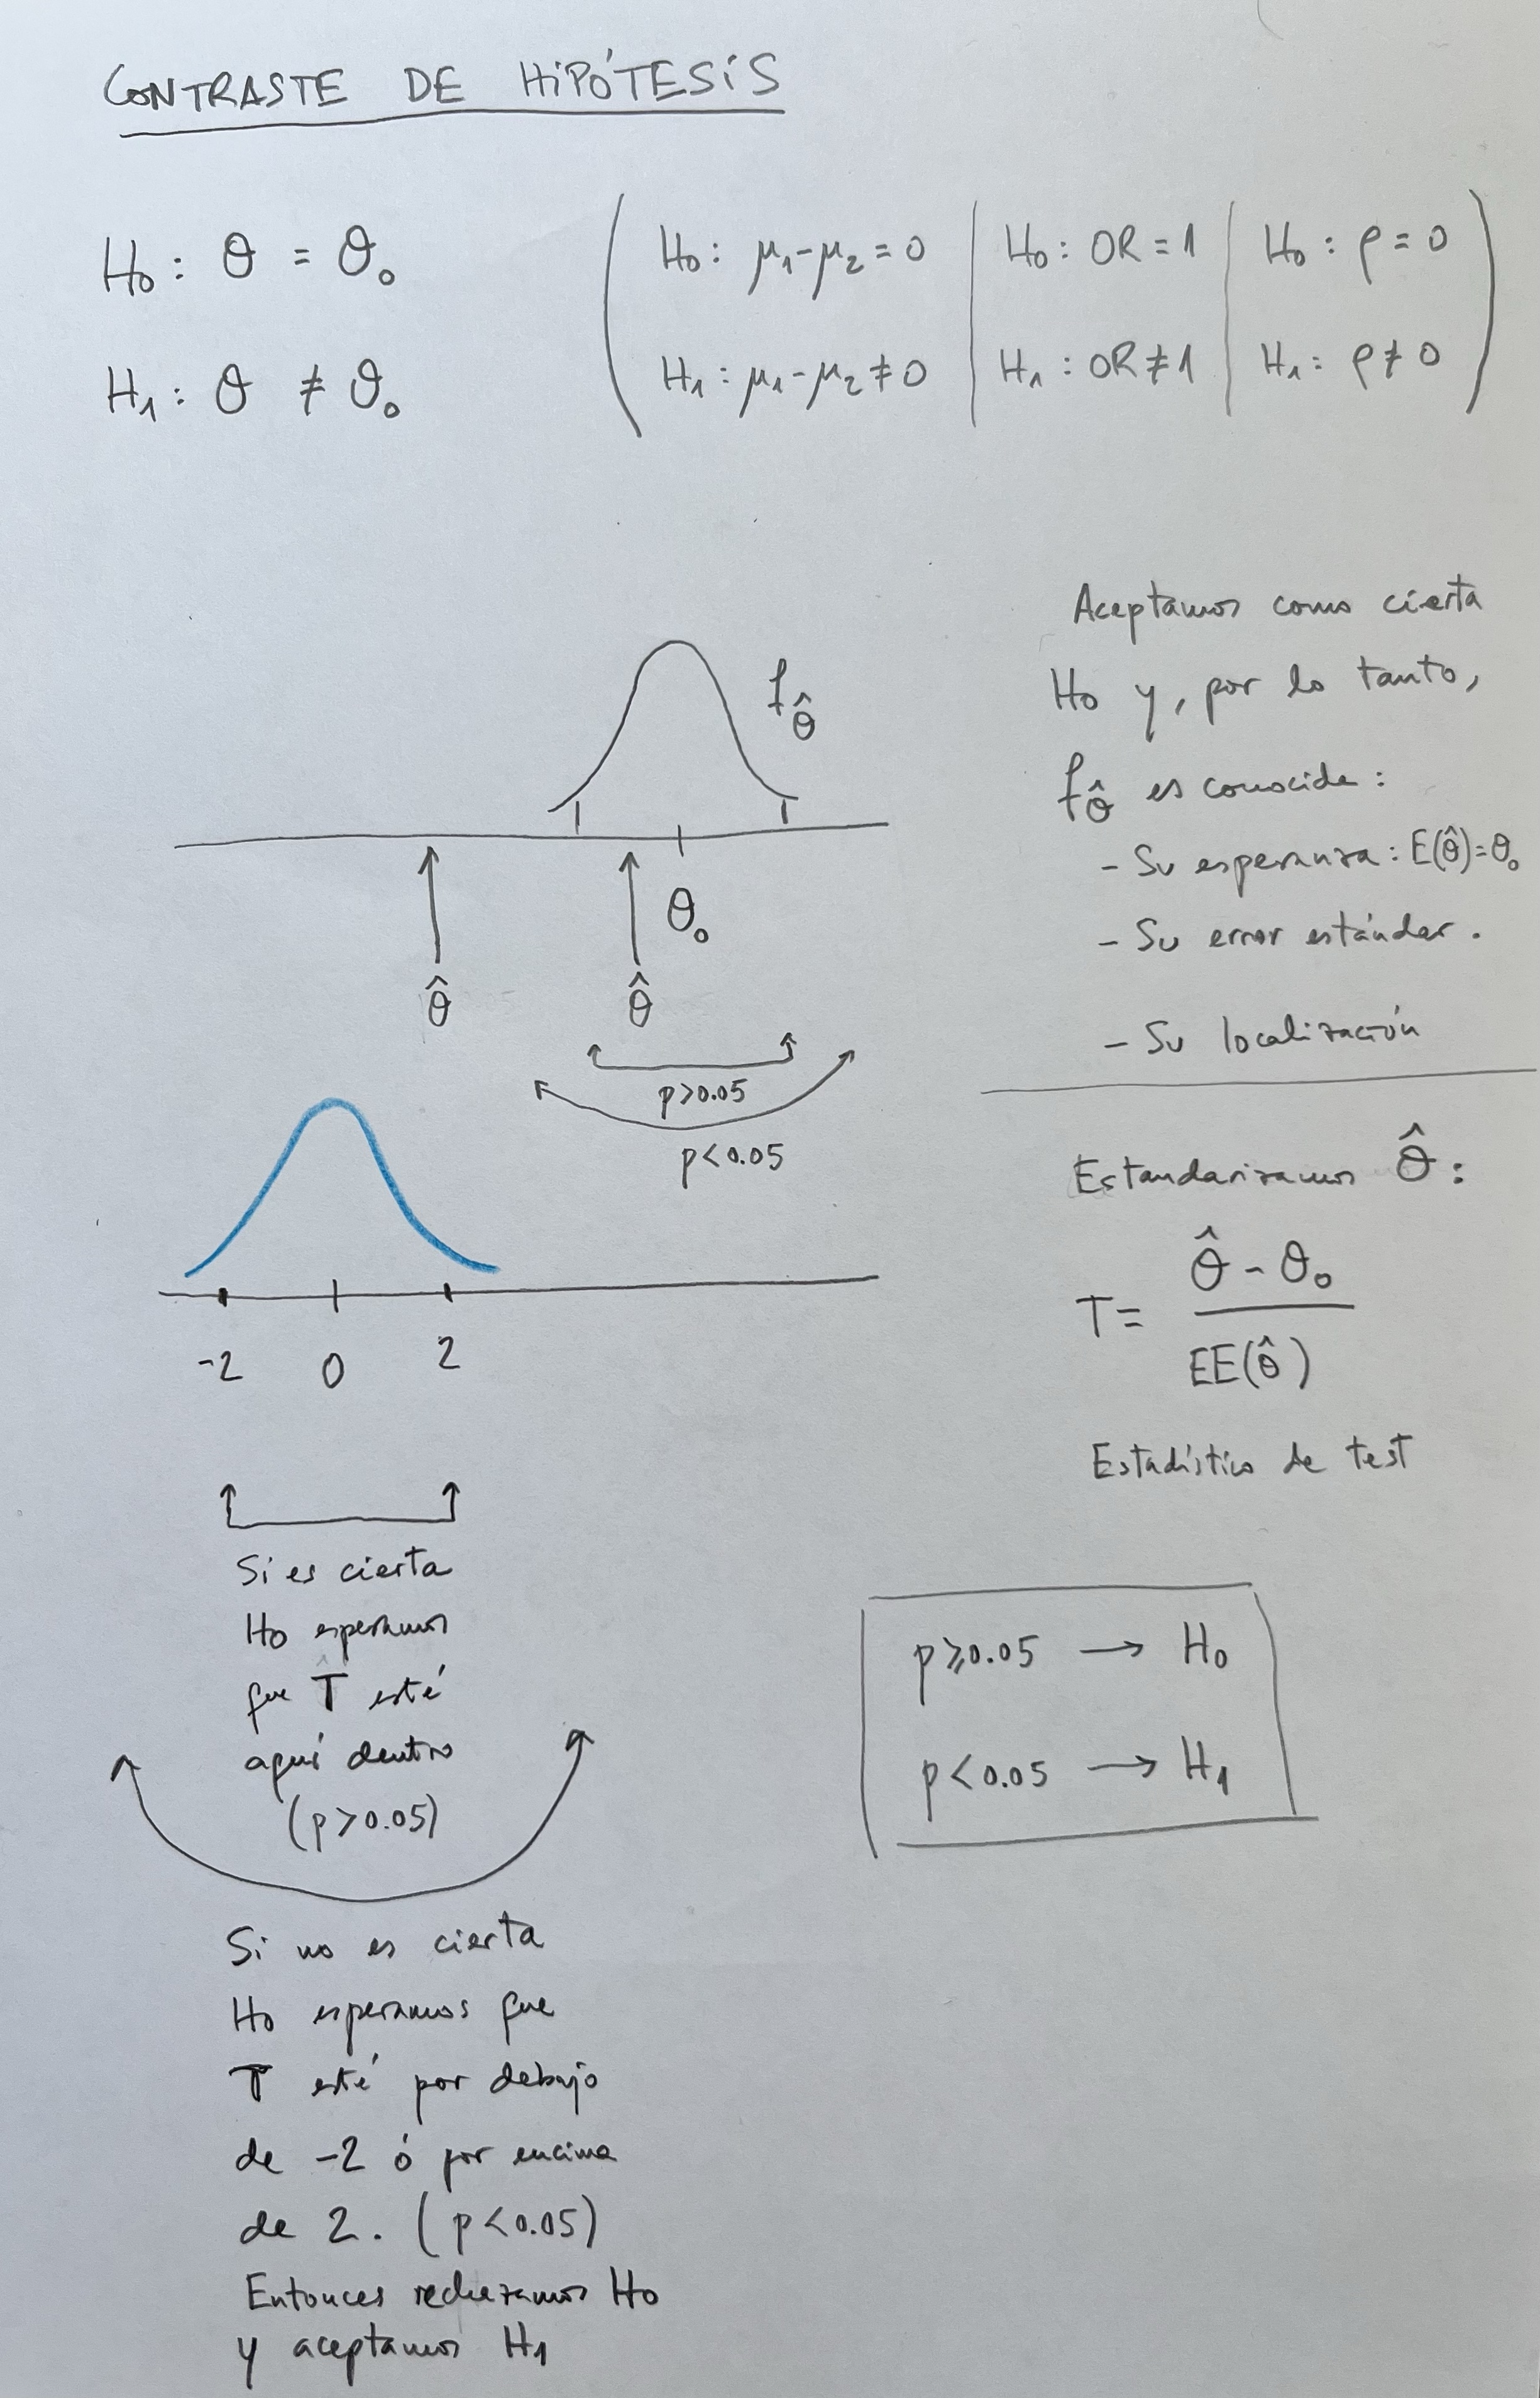 CONTRASTE DE HIPÓTESIS
H₀: θ = θ₀
H₁: θ ≠ θ₀
H₀: μ₁-μ₂ = 0 | H₀: OR = 1 | H₀: ρ = 0
H₁: μ₁-μ₂ ≠ 0 | H₁: OR ≠ 1 | H₁: ρ ≠ 0
f_θ̂
θ₀
θ̂ θ̂
p>0.05
p<0.05
Aceptamos como cierta
H₀ y, por lo tanto,
f_θ̂ es conocida:
- Su esperanza: E(θ̂)=θ₀
- Su error estándar.
- Su localización
Estandarizamos θ̂:
T = (θ̂ - θ₀) / EE(θ̂)
Estadístico de test
-2 0 2
Si es cierta
H₀ esperamos
que T esté
aquí dentro
(p>0.05)
Si no es cierta
H₀ esperamos que
T esté por debajo
de -2 ó por encima
de 2. (p<0.05)
Entonces rechazamos H₀
y aceptamos H₁
p≥0.05 → H₀
p<0.05 → H₁